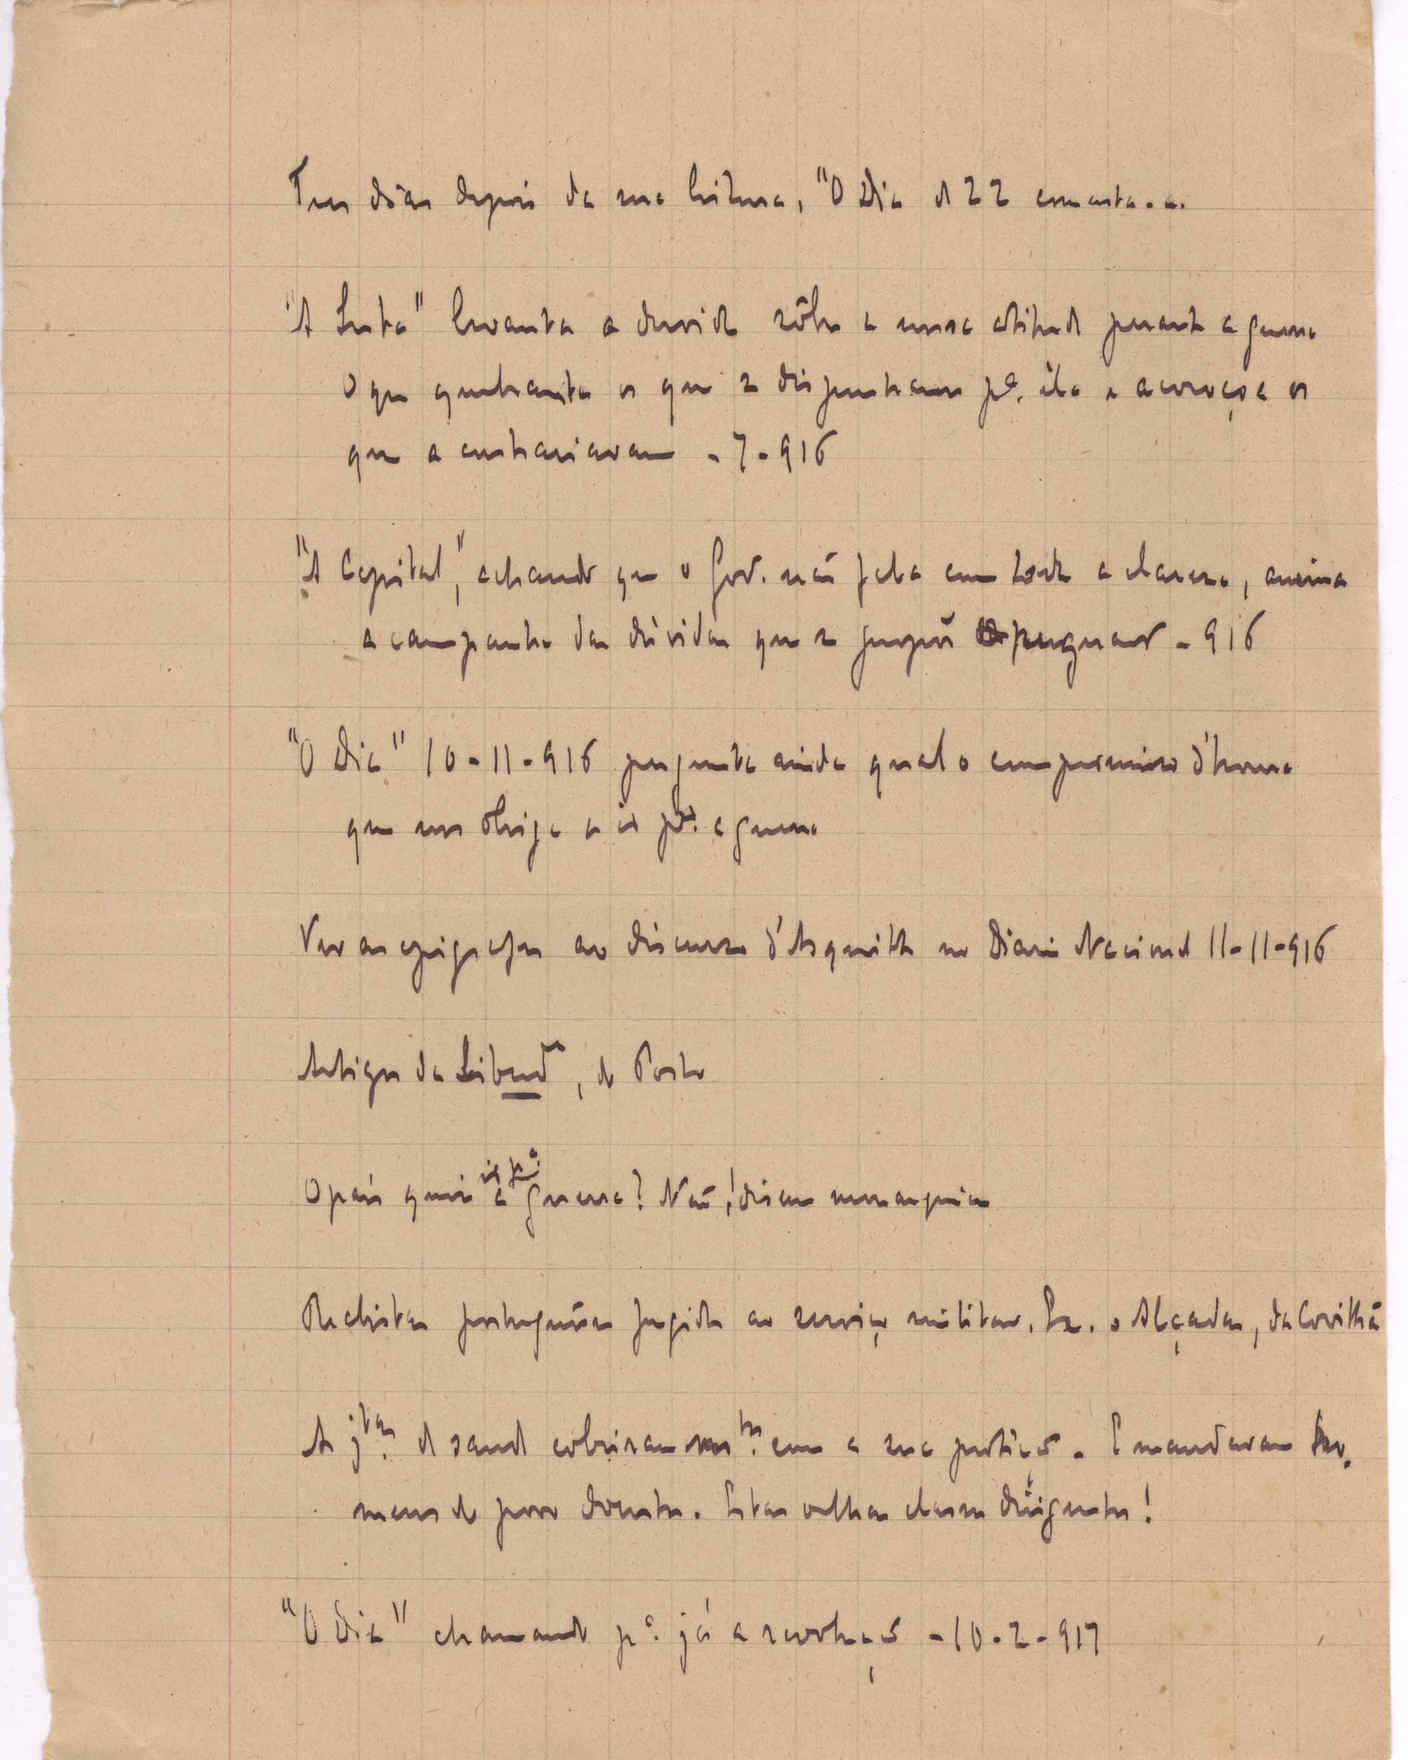 Tres dias depois da sua leitura, "O Dia de 22 comenta-a.
"A Luta" levanta a duvida sôbre a nossa atitude perante a guerra
O que quebranta os que se dispunham pª. ela e acoroçoa os
que a contrariavam - 7-916
"A Capital", achando que o Gov. não fala com toda a clareza, anima
a campanha das dúvidas que se propõi pugnar - 916
"O Dia" 10-11-916 pergunta ainda qual o compromisso d'honra
que nos obriga a ir pª. a guerra
Ver as epigrafes ao discurso d'Asquith no Diario Nacional 11-11-916
Artigos da Liberd^e, do Porto
O país quis ir pª. a guerra? Não! disem monarquicos
Realistas portuguêses fugidos ao serviço militar. Ex. o Alçada, da Covilhã
As j^tas. de saude cobriram m^tos. com a sua protiçao. E mandaram ho-
mens do povo doentes. Estas velhas classes dirigentes!
"O Dia" chamando pª. já a revolução - 10-2-917